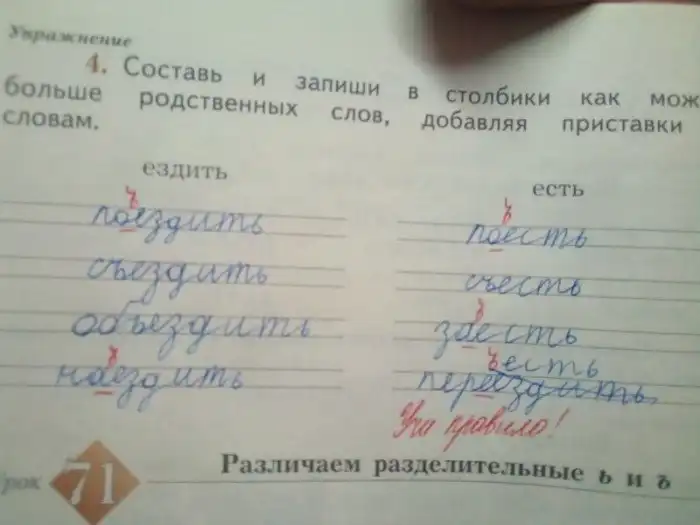 Упражнение
4. Составь и запиши в столбики как мож
больше родственных слов, добавляя приставки
словам.
ездить
есть
ъ
поездить
ъ
поесть
съездить
съесть
объездить
ъ
заесть
ъ
наездить
ъесть
переездить
Учи правило!
урок 71
Различаем разделительные ь и ъ